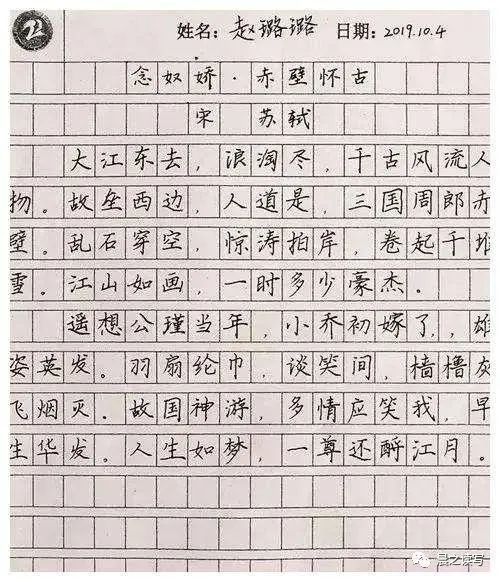 姓名：赵璐璐 日期：2019.10.4
念奴娇·赤壁怀古
宋 苏轼
大江东去，浪淘尽，千古风流人
物。故垒西边，人道是，三国周郎赤
壁。乱石穿空，惊涛拍岸，卷起千堆
雪。江山如画，一时多少豪杰。
遥想公瑾当年，小乔初嫁了，雄
姿英发。羽扇纶巾，谈笑间，樯橹灰
飞烟灭。故国神游，多情应笑我，早
生华发。人生如梦，一尊还酹江月。
晨之读写